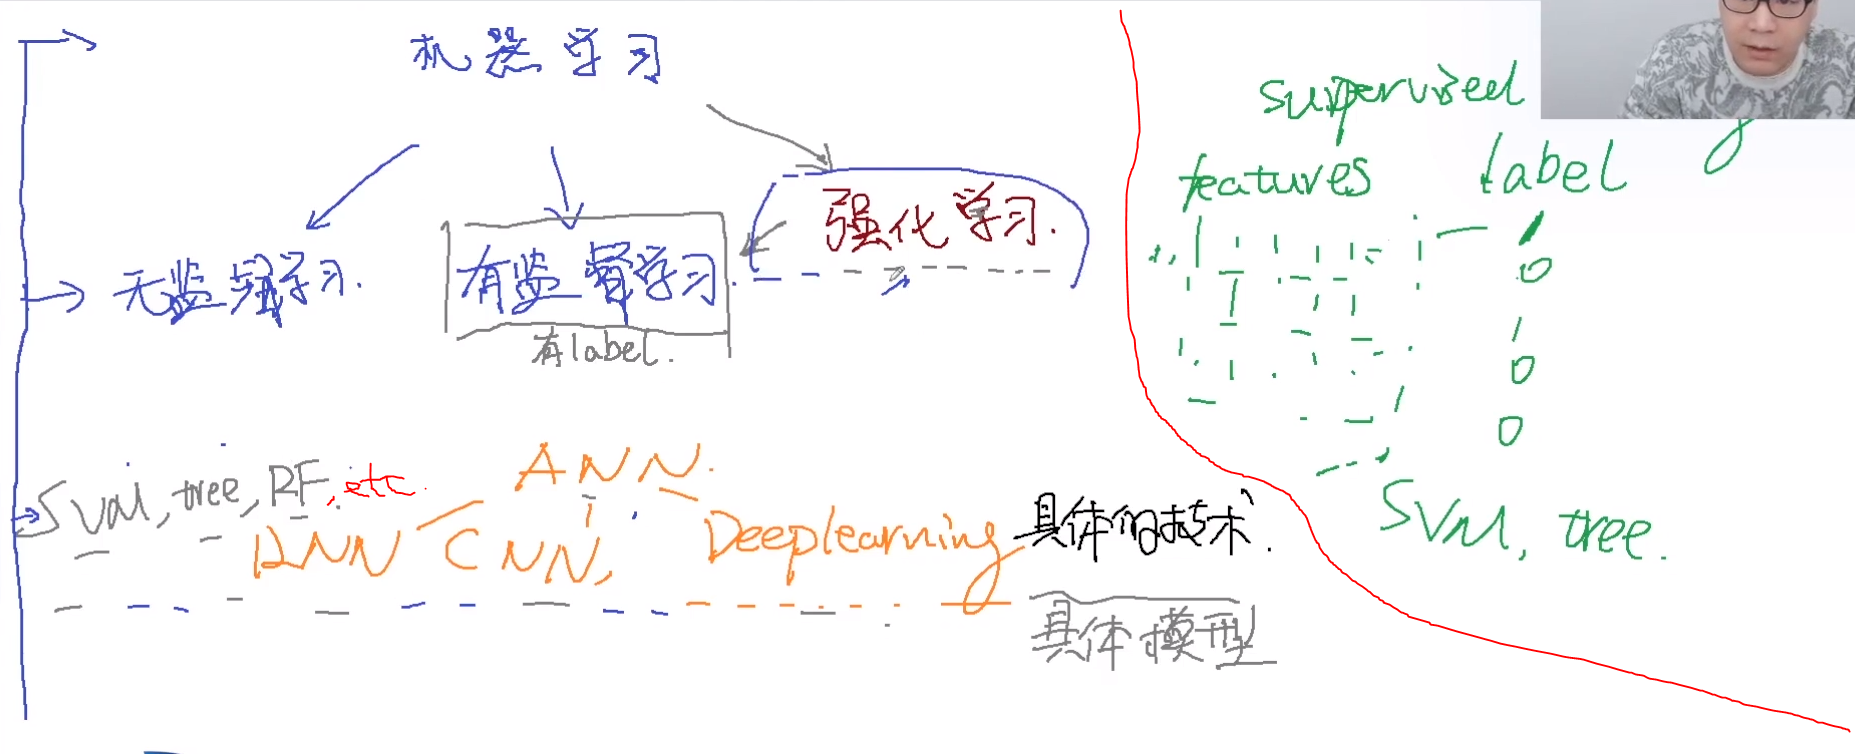 机器学习
强化学习.
无监督学习.
有监督学习.
有label.
SVM, tree, RF, etc.
ANN.
DNN CNN,
Deeplearning
具体的技术.
具体模型
supervised
features label
1
0
1
0
0
SVM, tree.